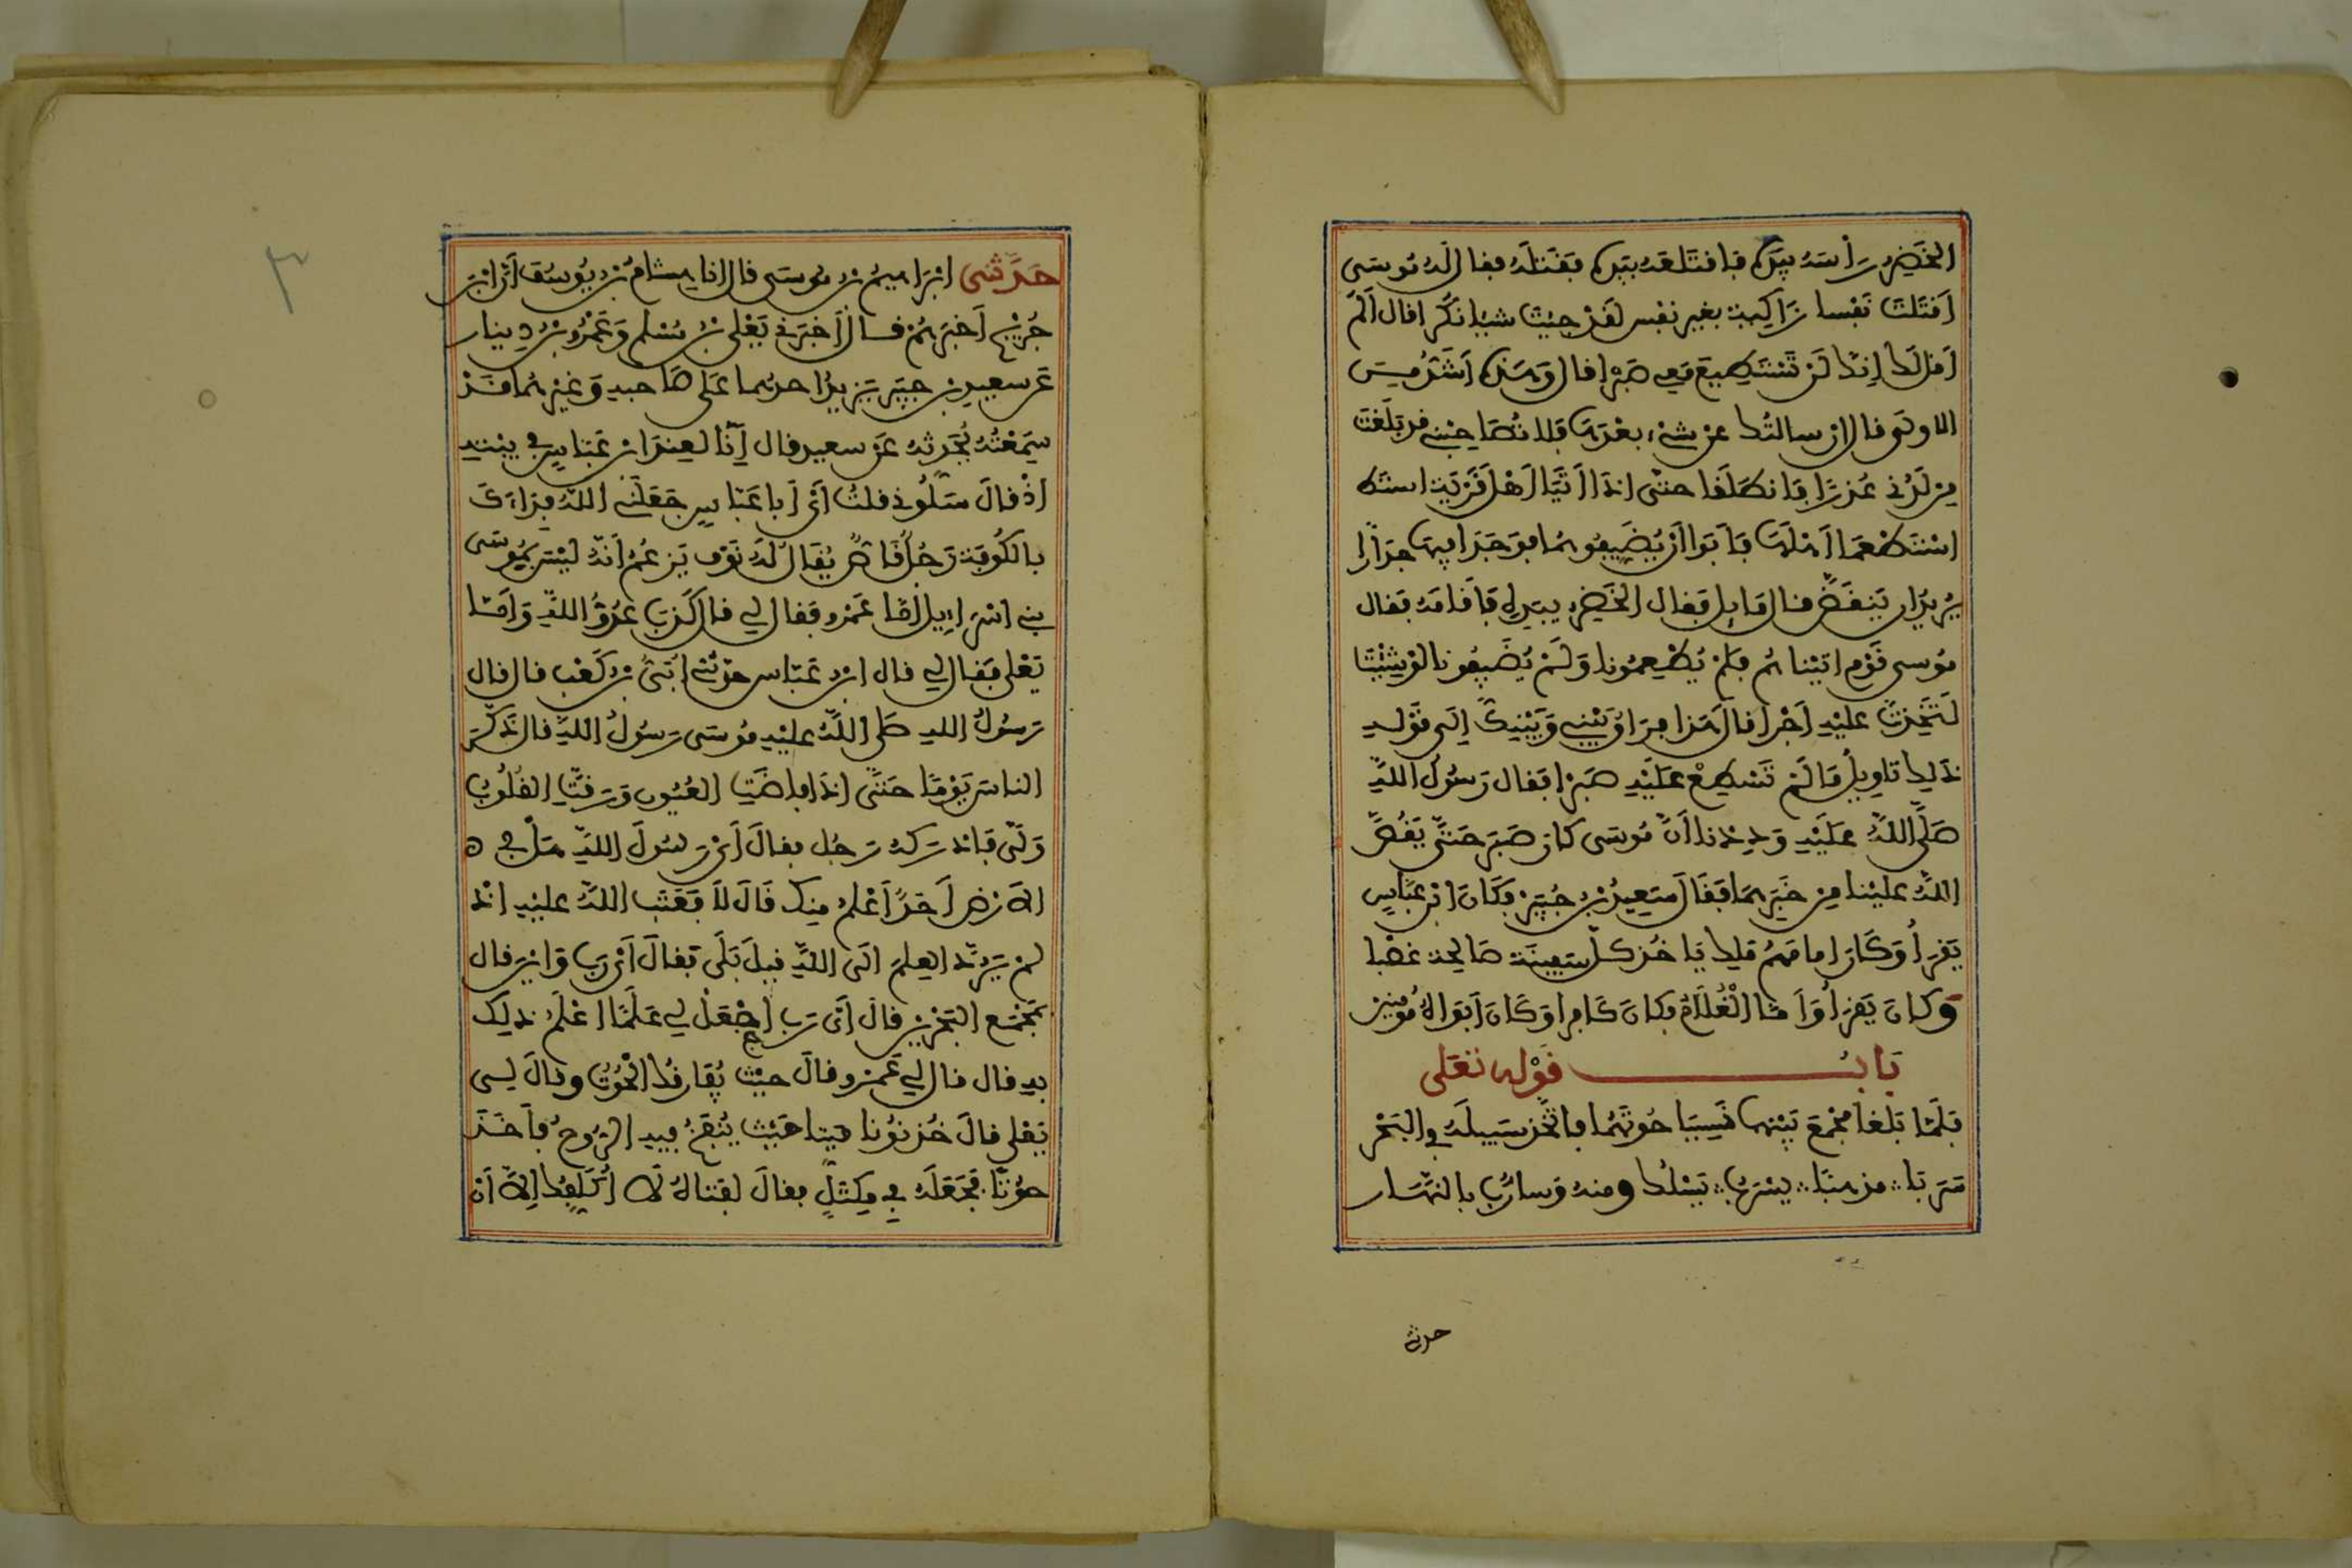 الخَضِرُ رَأْسَهُ بِيَدِهِ فَاقْتَلَعَهُ بِيَدِهِ فَقَتَلَهُ فقال لَهُ مُوسَى
أَقَتَلْتَ نَفْسا زَاكِيَة بغير نفس لقَدْ جِئْتَ شيئا نُكْرا قال أَلَمْ
أَقُل لَكَ إِنَّكَ لَنْ تَسْتَطِيعَ مَعِي صَبْرا قال وَهَذِهِ أَشَدُّ مِنَ
الاولَى قال إن سالتُكَ عن شَيْء بعْدَهَا فَلا تُصَاحِبْنِي قد بَلَغْتَ
مِن لَدُنِّي عُذرًا فَانطَلَقَا حتَّى إذَا أَتَيَا أَهْلَ قَرْيَة استط
اسْتَطْعَمَا أَهْلَهَا فَأبَوْا أَنْ يُضَيِّفُوهُمَا فوَجَدَا فِيهَا جِدَارًا
يُرِيدُ أن يَنقَضَّ قال مَايِل فَقال الخَضِرُ بِيَدِهِ فَأقَامَهُ فَقال
مُوسى قَوْم اتيْنَاهُم فَلَمْ يُطْعِمُونا وَلَمْ يُضَيِّفُونا لَوْ شِئْتَ
لَتَّخَذتَ عليْهِ أَجْرا قالَ هَذا فِرَاقُ بَيْنِي وَبَيْنِكَ إِلَى قَوْلِهِ
ذلِكَ تاوِيلُ مَا لَمْ تَسْطِعْ عَلَيْهِ صَبْرا فَقال رَسُولُ اللَّهِ
صَلَّى اللَّهُ عَلَيْهِ وَدِدْنا أَنَّ مُوسَى كان صَبَرَ حَتَّى يَقُصَّ
اللَّهُ عليْنا مِن خَبَرِهِمَا فَقَالَ سَعِيدُ بْنُ جُبَيْرْ فَكَانَ ابْن عَبَّاسٍ
يَقْرَأُ وَكَانَ إمامَهُم مَلِك يَاخُذ كلَّ سَفِينَة صَالِحَة غصْبا
وَكانَ يَقْرَأُ وَأَمَّا الْغُلَامُ فكانَ كَافِرا وَكَانَ أَبَوَاهُ مُؤْمِنَيْن
بَابُ قَوْلِهِ تَعَلَى
فَلَمَّا بَلَغَا مَجْمَعَ بَيْنِهِمَا نَسِيَا حُوتَهُمَا فاتَّخَذ سَبِيلَهُ في البَحْرِ
سَرَبًا مَذْهَبًا يَسْرُبُ يَسْلُك ومنه وَسارُبٌ بالنَّهَار
حدثني
حَدَّثني ابْرَاهِيمُ بْنُ مُوسَى قال انا هِشَامُ بْنُ يُوسُفَ أَنَّ ابْنَ
جُرَيْجٍ أَخْبَرَهُمْ قال أَخْبَرَنِي يَعْلَى بْنُ مُسْلِمٍ وَعَمْرُو بْنُ دِينار
عَن سعيدِ بْنِ جُبَيْر يَزِيدُ احدهما عَلَى صَاحبِهِ وَغَيْرهُمَا قَدْ
سَمِعْتُهُ يُحَدِّثُهُ عَن سعيد قال إنَّا لَعِنْدَ ابْنِ عَبَّاسٍ في بَيْتِهِ
إذْ قالَ سَلُونِي قلتُ أَيْ أَبا عَبَّاسٍ جَعَلَنِي اللَّهُ فِدَاءَكَ
بالكُوفَة رَجُلٌ قَاصٌّ يُقَالُ لَهُ نَوْف يَزْعُمُ أَنَّهُ لَيْسَ بِمُوسَى
بني إسْرَاءِيلَ أَمَّا عَمْرو فقال لي قال كَذَبَ عَدُوُّ اللَّهِ وَأَمَّا
يَعْلى فَقال لي قال ابْنُ عَبَّاس حدّثني أُبَيُّ بْنُ كَعْب قال قال
رَسُولُ اللهِ صَلى اللَّهُ عليْهِ مُوسَى رَسُولُ اللَّهِ قال ذَكَّرَ
الناسَ يَوْمًا حَتَّى إذَا فاضَتِ العُيُونِ وَرَقَّتِ القُلُوبُ
وَلَّى فَأدْرَكَهُ رَجُل فقالَ أَيْ رَسُولَ اللَّهِ هَلْ في
الأرْضِ أَحَدٌ أَعْلَمُ مِنكَ قَالَ لَا فَعَتَبَ اللَّهُ عليْهِ إذْ
لم يَرُدَّ العِلمَ إلَى اللَّهِ قِيلَ بَلَى فَقالَ أَيْ رَبِّ وَأيْنَ قال
بمَجْمَعِ البَحْرَيْنِ قالَ أَيْ رَبِّ اجْعَلْ لِي عَلَمًا أَعْلَمُ ذلِكَ
بِهِ قال قال لي عَمْرو قالَ حيْثُ يُفَارِقُكَ الْحُوتُ وقالَ لي
يَعْلى قالَ خُذ نُونا مَيّتا حَيْثُ يُنْفَخُ فيهِ الرُّوحُ فأَخَذَ
حُوتًا فَجَعَلَهُ فِي مِكْتَلٍ فقالَ لفَتاهُ لَا أُكَلِّفُكَ إلاَّ أَنْ
٣